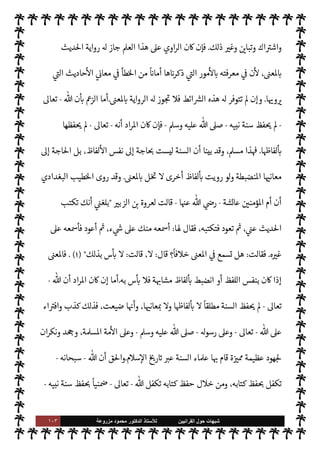 واشتراك وتباين وغير ذلك. فإن كان الراوي على هذا العلم جاز له رواية الحديث
بالمعنى، لأن في معرفته بالأمور التي ذكرناها أماناً من الخطأ في معاني الأحاديث التي
يرويها. وإن لم تتوفر له هذه الشرائط فلا تجوز له الرواية بالمعنى.أما الزعم بأن الله - تعالى
- لم يحفظ سنة نبيه - صلى الله عليه وسلم - فإن كان المراد أنه - تعالى - لم يحفظها
بألفاظها. فهذا مسلم، وقد بينا أن السنة ليست بحاجة إلى نفس الألفاظ، بل الحاجة إلى
معانيها المنضبطة ولو رويت بألفاظ أخرى لا تخل بالمعنى. وقد روى الخطيب البغدادي
أن أم المؤمنين عائشة - رضي الله عنها - قالت لعروة بن الزبير "بلغني أنك تكتب
الحديث عني، ثم تعود فتكتبه، فقال لها: أسمعه منك على شيء، ثم أعود فأسمعه على
غيره. فقالت: هل تسمع في المعنى خلافاً؟ قال: لا. قالت: لا بأس بذلك" (١) . فالمعنى
إذا كان بنفس اللفظ أو انضبط بألفاظ مشابهة فلا بأس به.أما إن كان المراد أن الله -
تعالى - لم يحفظ السنة مطلقاً لا بألفاظها ولا بمعانيها، وأنها ضيعت، فذلك كذب وافتراء
على الله - تعالى - وعلى رسوله - صلى الله عليه وسلم - وعلى الأمة المسلمة، وجحد ونكران
لجهود عظيمة مميزة قام بها علماء السنة عبر تاريخ الإسلام.والحق أن الله - سبحانه -
تكفل بحفظ كتابه، ومن خلال حفظ كتابه تكفل الله - تعالى - ضمنياً بحفظ سنة نبيه -
شبهات حول القرآنيين للأستاذ الدكتور محمود مزروعة ١٠٣